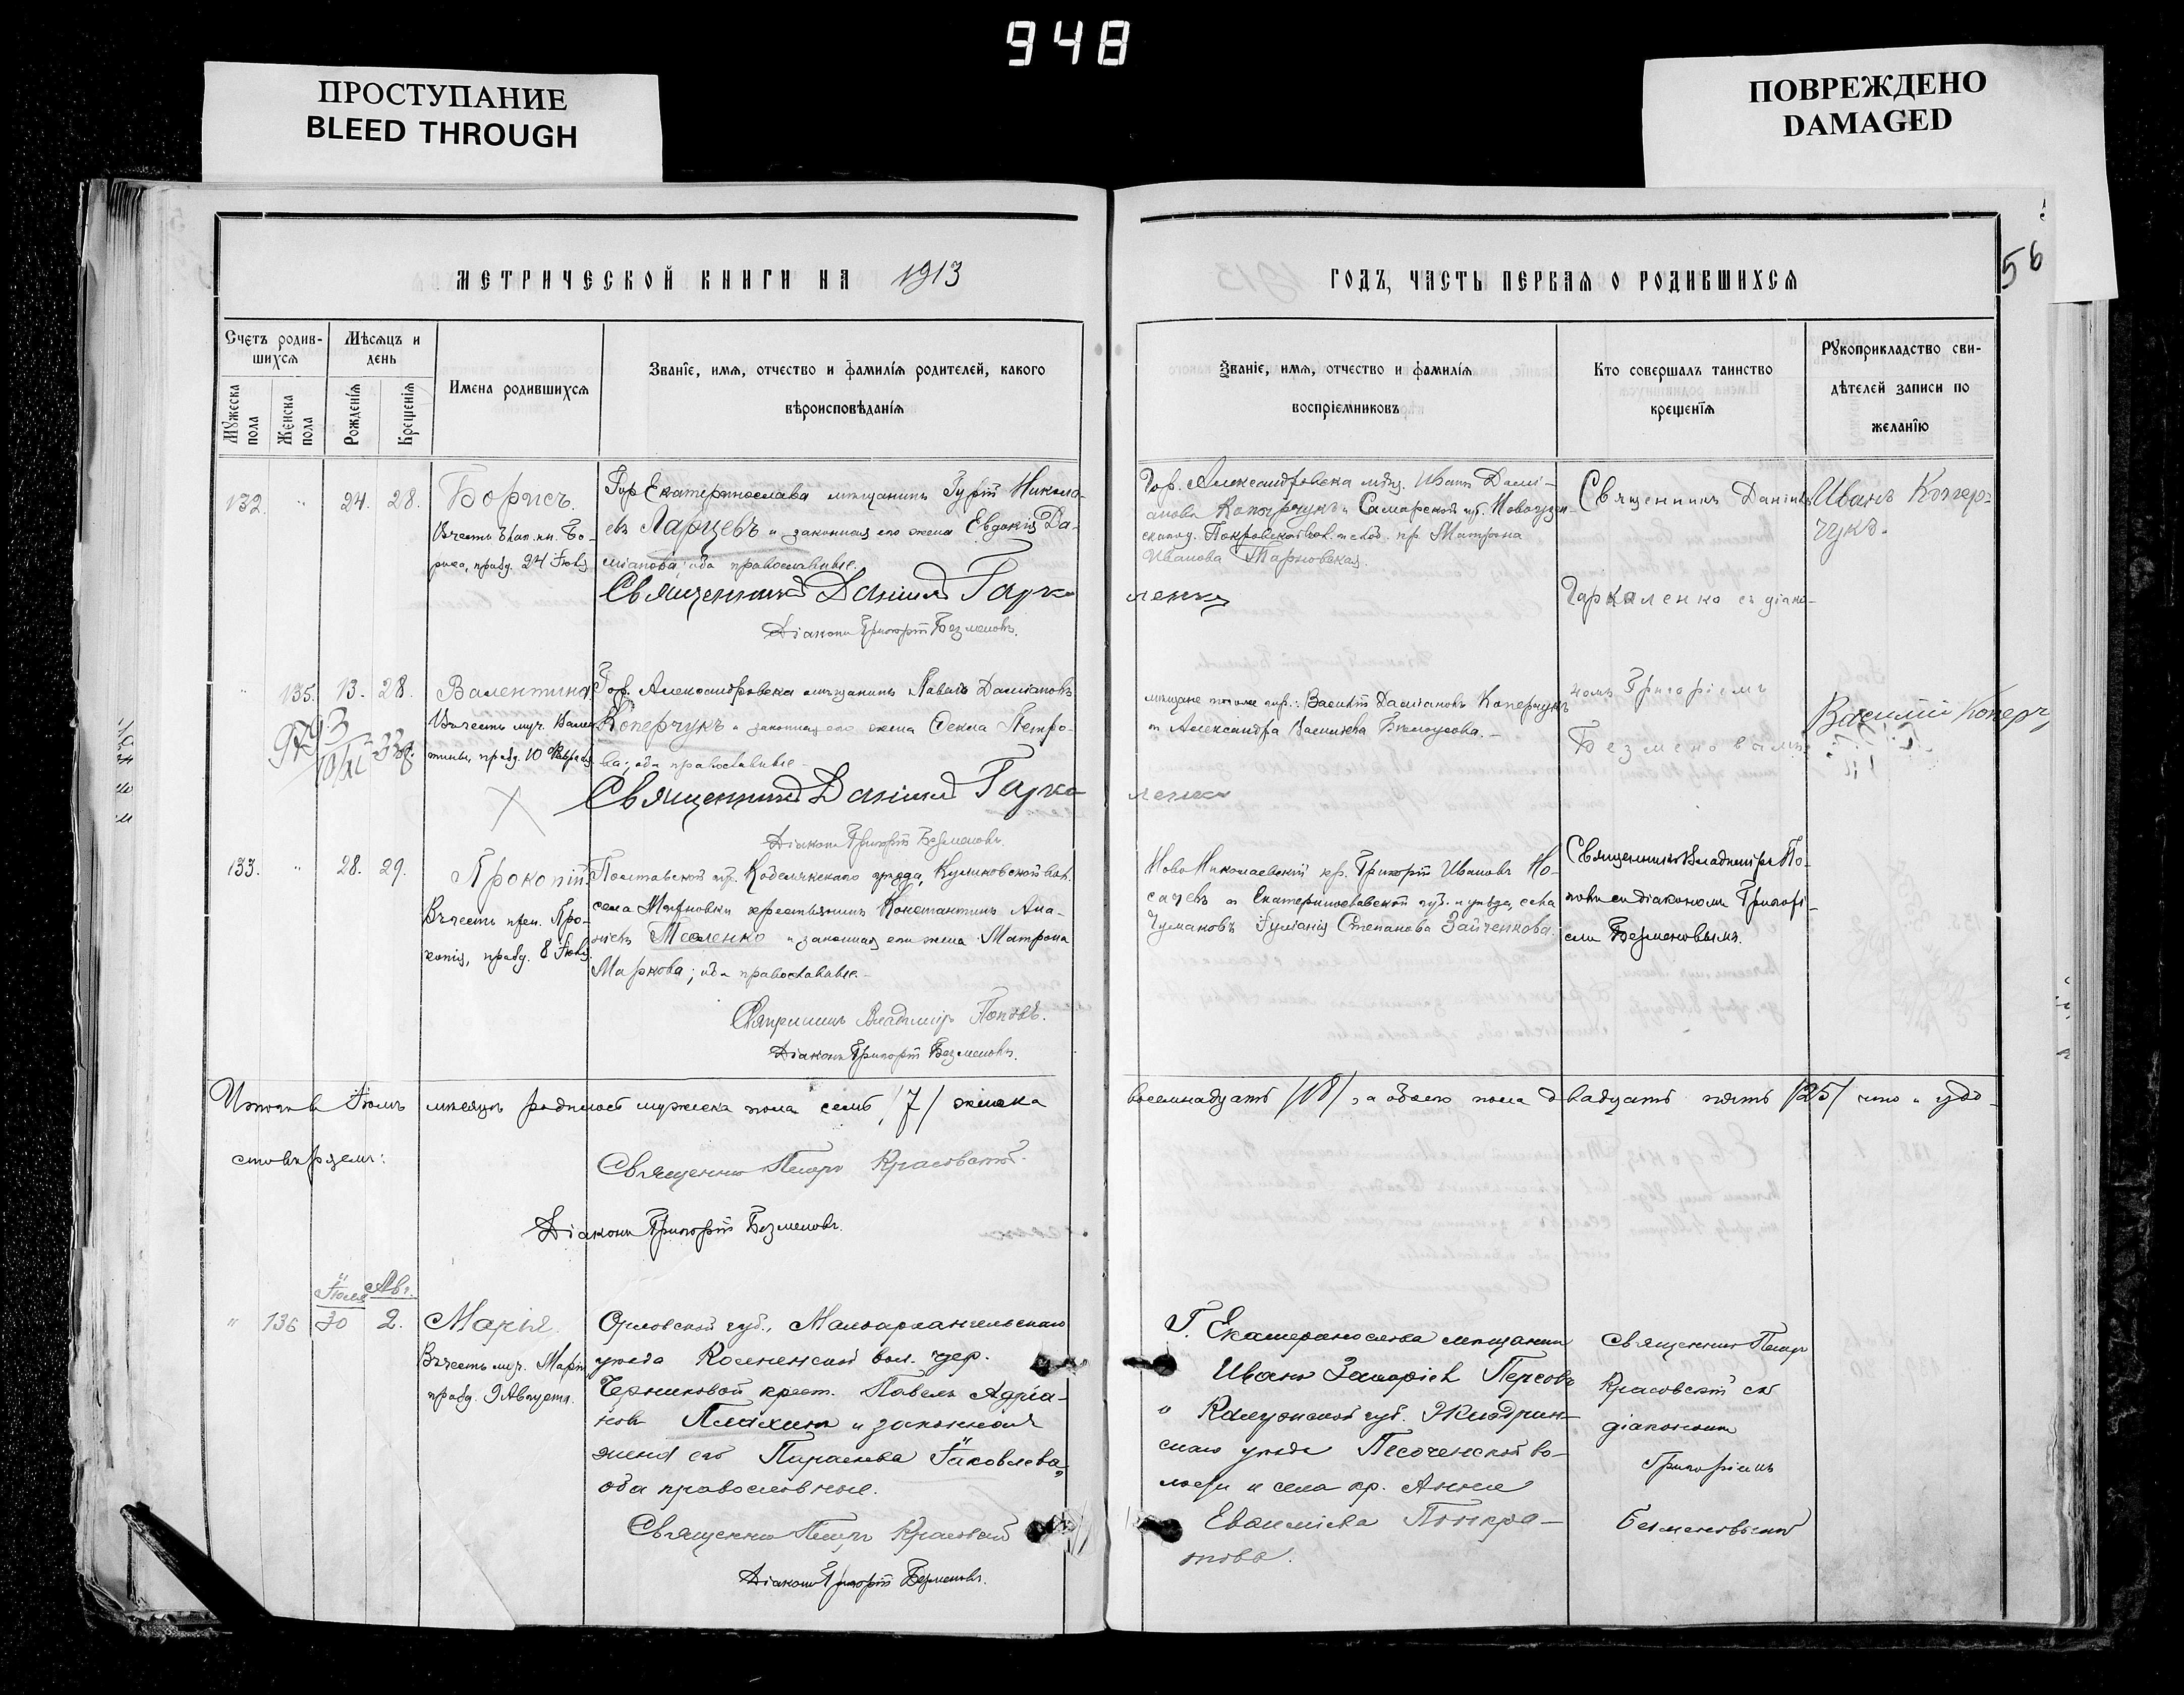 948
ПРОСТУПАНИЕ
BLEED THROUGH
ПОВРЕЖДЕНО
DAMAGED
56
МЕТРИЧЕСКОЙ КНИГИ НА 1913
ГОДЪ, ЧАСТЬ ПЕРВАЯ О РОДИВШИХСЯ
Счетъ родив-
шихся
Мужеска
пола
Женска
пола
Мѣсяцъ и
день
Рожденія
Крещенія
Имена родившихся
Званіе, имя, отчество и фамилія родителей, какого
вѣроисповѣданія
Званіе, имя, отчество и фамилія
воспріемниковъ
Кто совершалъ таинство
крещенія
Рукоприкладство сви-
дѣтелей записи по
желанію
132. " 24. 28.
Борисъ.
Въ честь благ. кн. Бо-
риса, празд. 24 Іюля
Гор. Екатеринослава мѣщанинъ Гурій Никола-
евъ Ларцевъ и законная его жена Евдокія Да-
міанова, оба православные.
Священникъ Даніилъ Гарка-
ленко
Діаконъ Григорій Безменовъ.
Гор. Александровска мѣщ. Иванъ Домі-
ановъ Коперчукъ и Самарской губ. Новоузен-
скаго у. Покровской слоб. кр. Матрона
Иванова Тарновская.
Священникъ Даніилъ
Гаркаленко съ діако-
номъ Григоріемъ
Безменовымъ
Иванъ Копер-
чукъ.
" 135. 13. 28.
Валентина
Въ честь муч. Вален-
тины, празд. 10 Февраля
9793
10/XI
338.
Гор. Александровска мѣщанинъ Павелъ Даміановъ
Коперчукъ и законная его жена Ѳекла Петро-
ва; оба православные.
Священникъ Даніилъ Гарка-
ленко
Діаконъ Григорій Безменовъ.
мѣщане того же гор.: Василій Даміановъ Коперчукъ
и Александра Васильева Бѣлоусова.
Василій Коперч
133. " 28. 29.
Прокопій
Въ честь препод. Про-
копія, празд. 8 Іюля.
Полтавской губ. Кобелякскаго уѣзда, Кулиновской вол.
села Марновки крестьянинъ Константинъ Ана-
ніевъ Месленко и законная его жена Матрона
Маркова; оба православные.
Священникъ Владиміръ Поповъ.
Діаконъ Григорій Безменовъ.
Ново Николаевскій кр. Григорій Ивановъ Но-
сачевъ и Екатеринославской губ. и уѣзда, села
Чумаковъ Іуліанія Степанова Зайченкова.
Священникъ Владиміръ По-
повъ съ діакономъ Григорі-
емъ Безменовымъ.
Итого въ Іюлѣ мѣсяцѣ родилось мужска пола семь /7/ женска
восемнадцать /18/, а обоего пола двадцать пять /25/ что и удо-
стовѣряемъ:
Священникъ Петръ Красовскій.
Діаконъ Григорій Безменовъ.
Іюля Авг.
" 136 30 2.
Марія.
Въ честь муч. Маріи
празд. 9 Августа.
Орловской губ., Малоархангельскаго
уѣзда Колпенской вол. дер.
Черниковой крест. Павелъ Адріа-
новъ Плахинъ и законная
жена его Параскева Іаковлева,
оба православные.
Священникъ Петръ Красовскій
Діаконъ Григорій Безменовъ.
Г. Екатеринослава мѣщанинъ
Иванъ Захаріевъ Персовъ
и Калужской губ. Жиздрин-
скаго уѣзда Песоченской во-
лости и села кр. Анна
Евсигніева Понкра-
това.
Священникъ Петръ
Красовскій съ
діакономъ
Григоріемъ
Безменовымъ